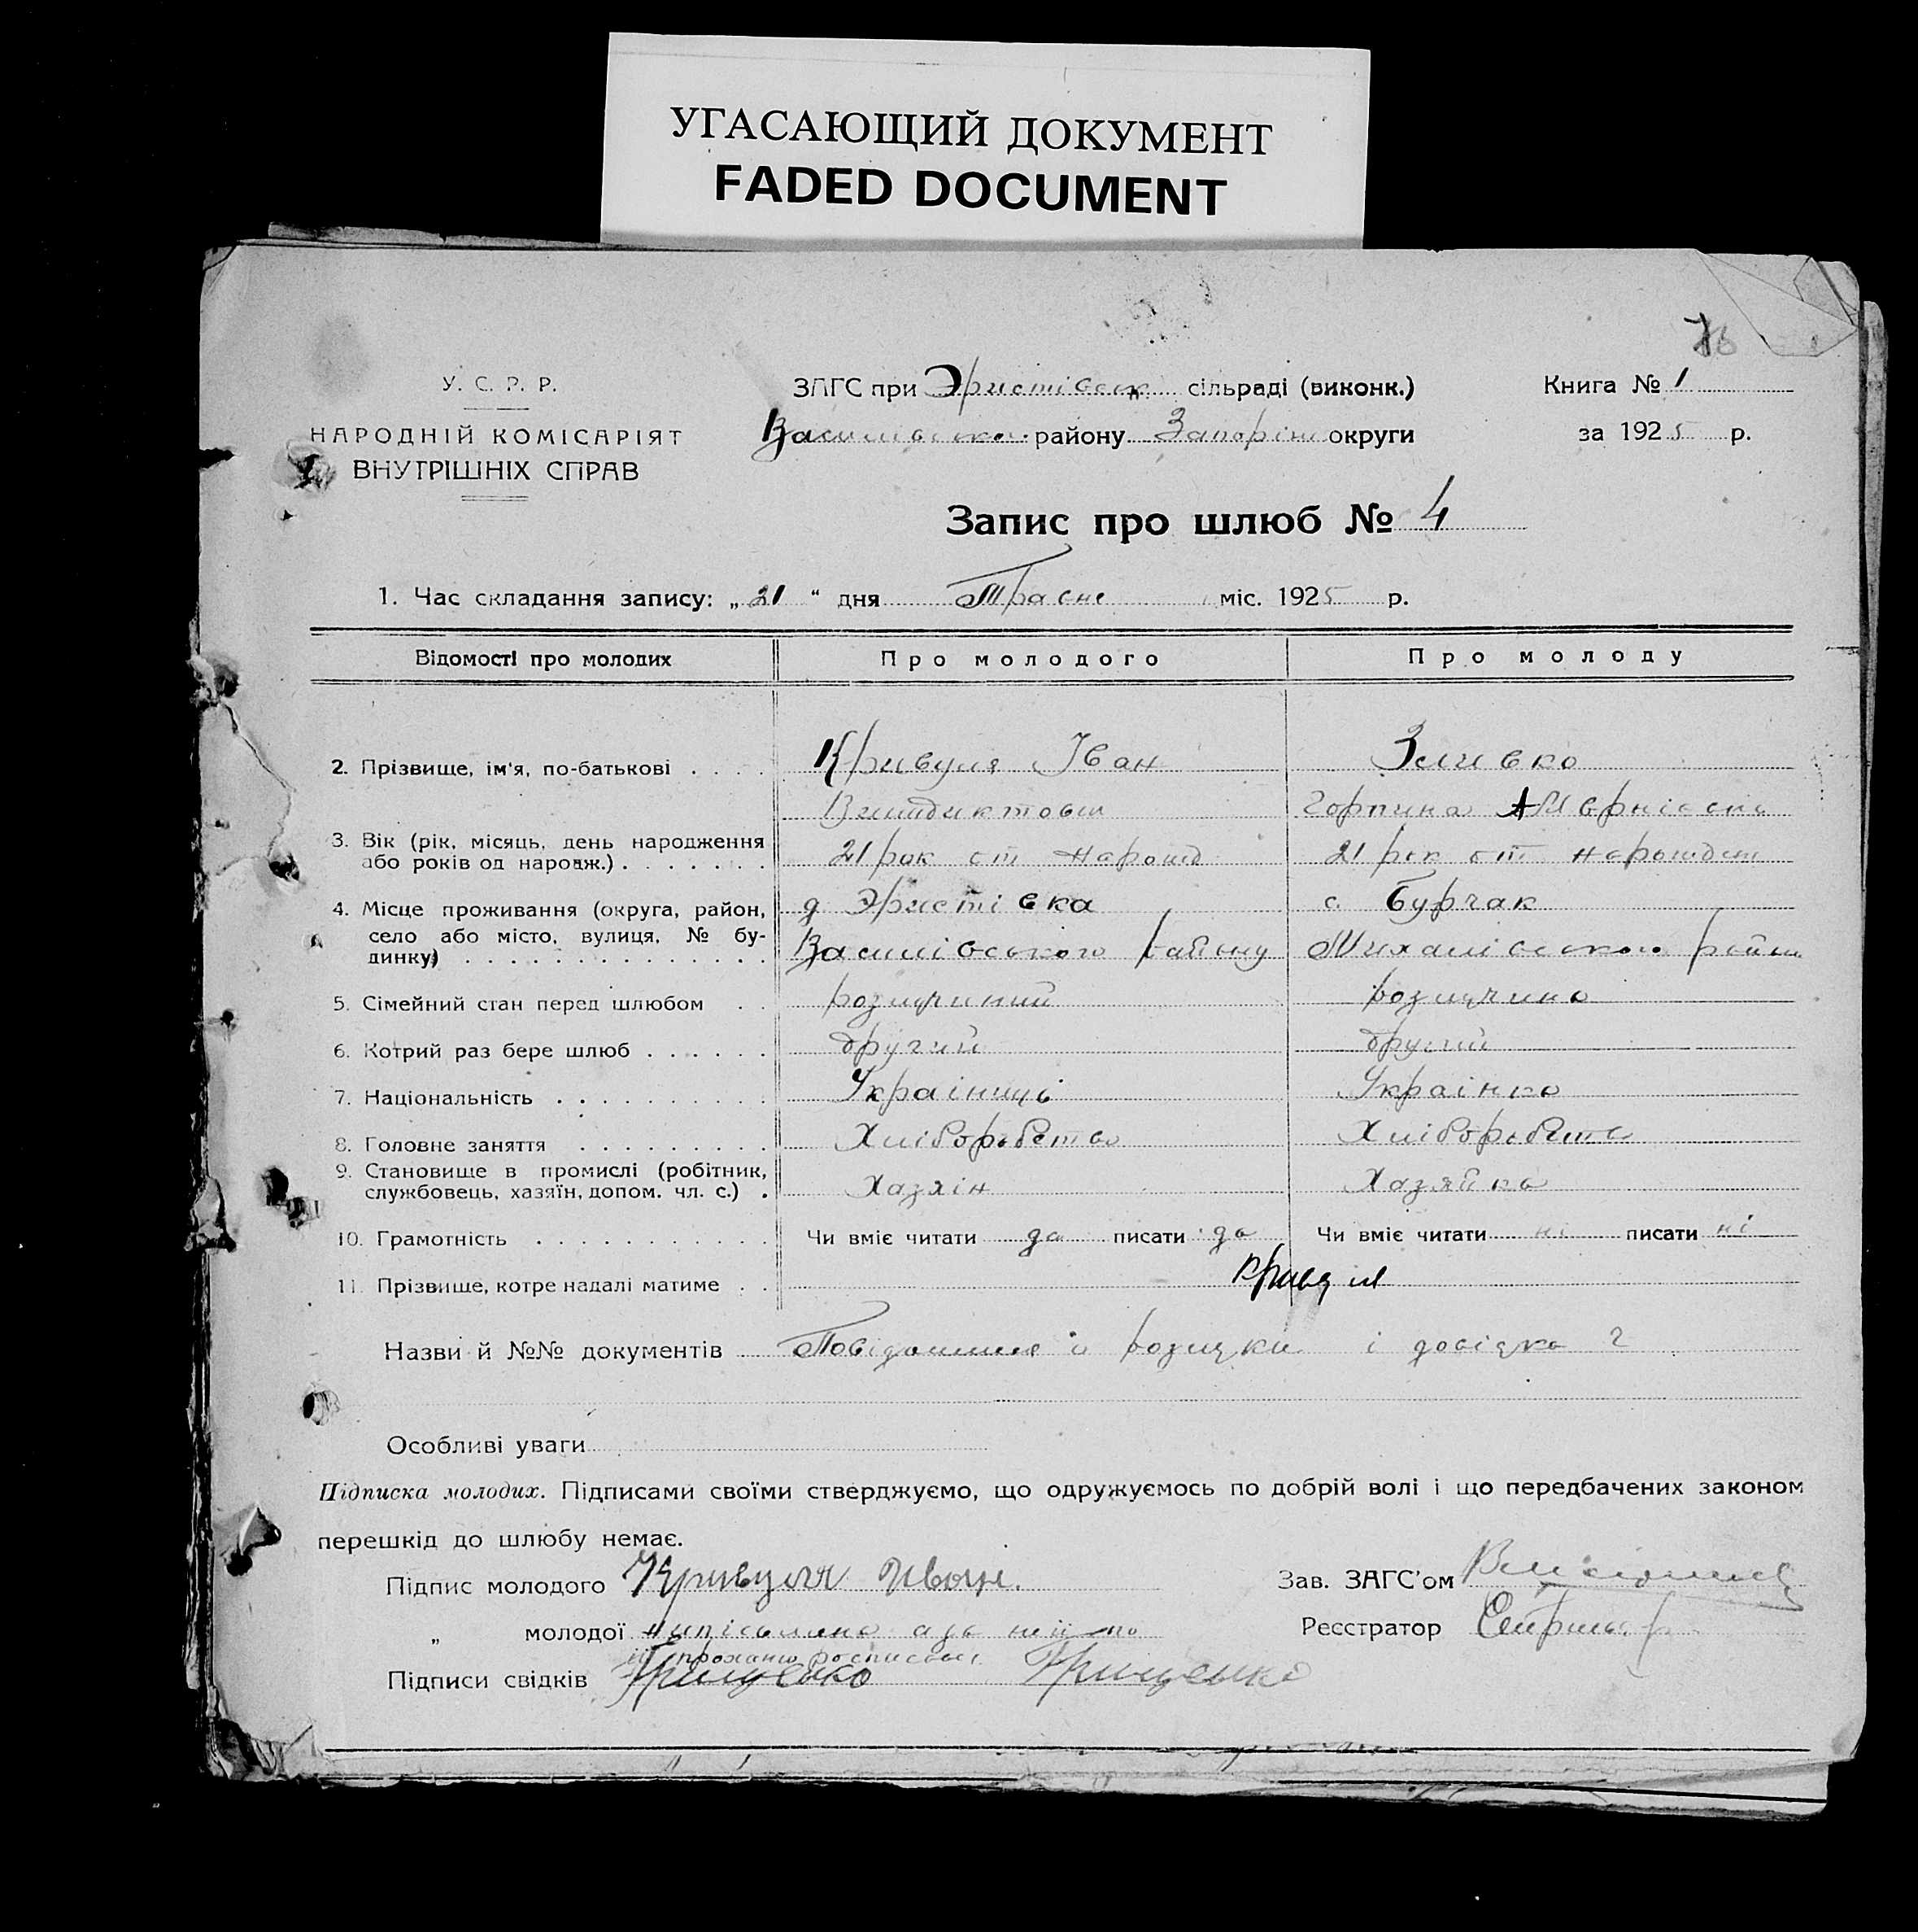 УГАСАЮЩИЙ ДОКУМЕНТ
FADED DOCUMENT
У. С. Р. Р.
НАРОДНІЙ КОМІСАРІЯТ
ВНУТРІШНІХ СПРАВ
ЗАГС при Эристівськ сільраді (виконк.)
Василівсько району Запоріж округи
Книга № 1
за 1925 р.
Запис про шлюб № 4
1. Час складання запису: „ 21 “ дня Травне міс. 1925 р.
Відомості про молодих
Про молодого
Про молоду
2. Прізвище, ім'я, по-батькові
Кривуля Іван
горпина
3. Вік (рік, місяць, день народження або років од нарадж.)
21 рок от нарожд
21 рок от нарожден
4. Місце проживання (округа, район, село або місто, вулиця, № будинку)
д Эристівка
Василівського району
с. Бурчак
Михалівського район
5. Сімейний стан перед шлюбом
розлучиний
розлучина
6. Котрий раз бере шлюб
другий
другий
7. Національність
Українць
Українко
8. Головне заняття
Хліборобство
Хліборобство
9. Становище в промислі (робітник, службовець, хазяїн, допом. чл. с.)
Хазяін
Хазяйка
10. Грамотність
Чи вміє читати да писати да
Чи вміє читати ні писати ні
11. Прізвище, котре надалі матиме
Кривуля
Назви й №№ документів
розлуки і довідка 2
Особливі уваги
Підписка молодих. Підписами своїми стверджуємо, що одружуємось по добрій волі і що передбачених законом
перешкід до шлюбу немає.
Підпис молодого Кривуля Иван.
Зав. ЗАГС'ом
„ молодої
Реєстратор
Підписи свідків Грищенко Грищенко